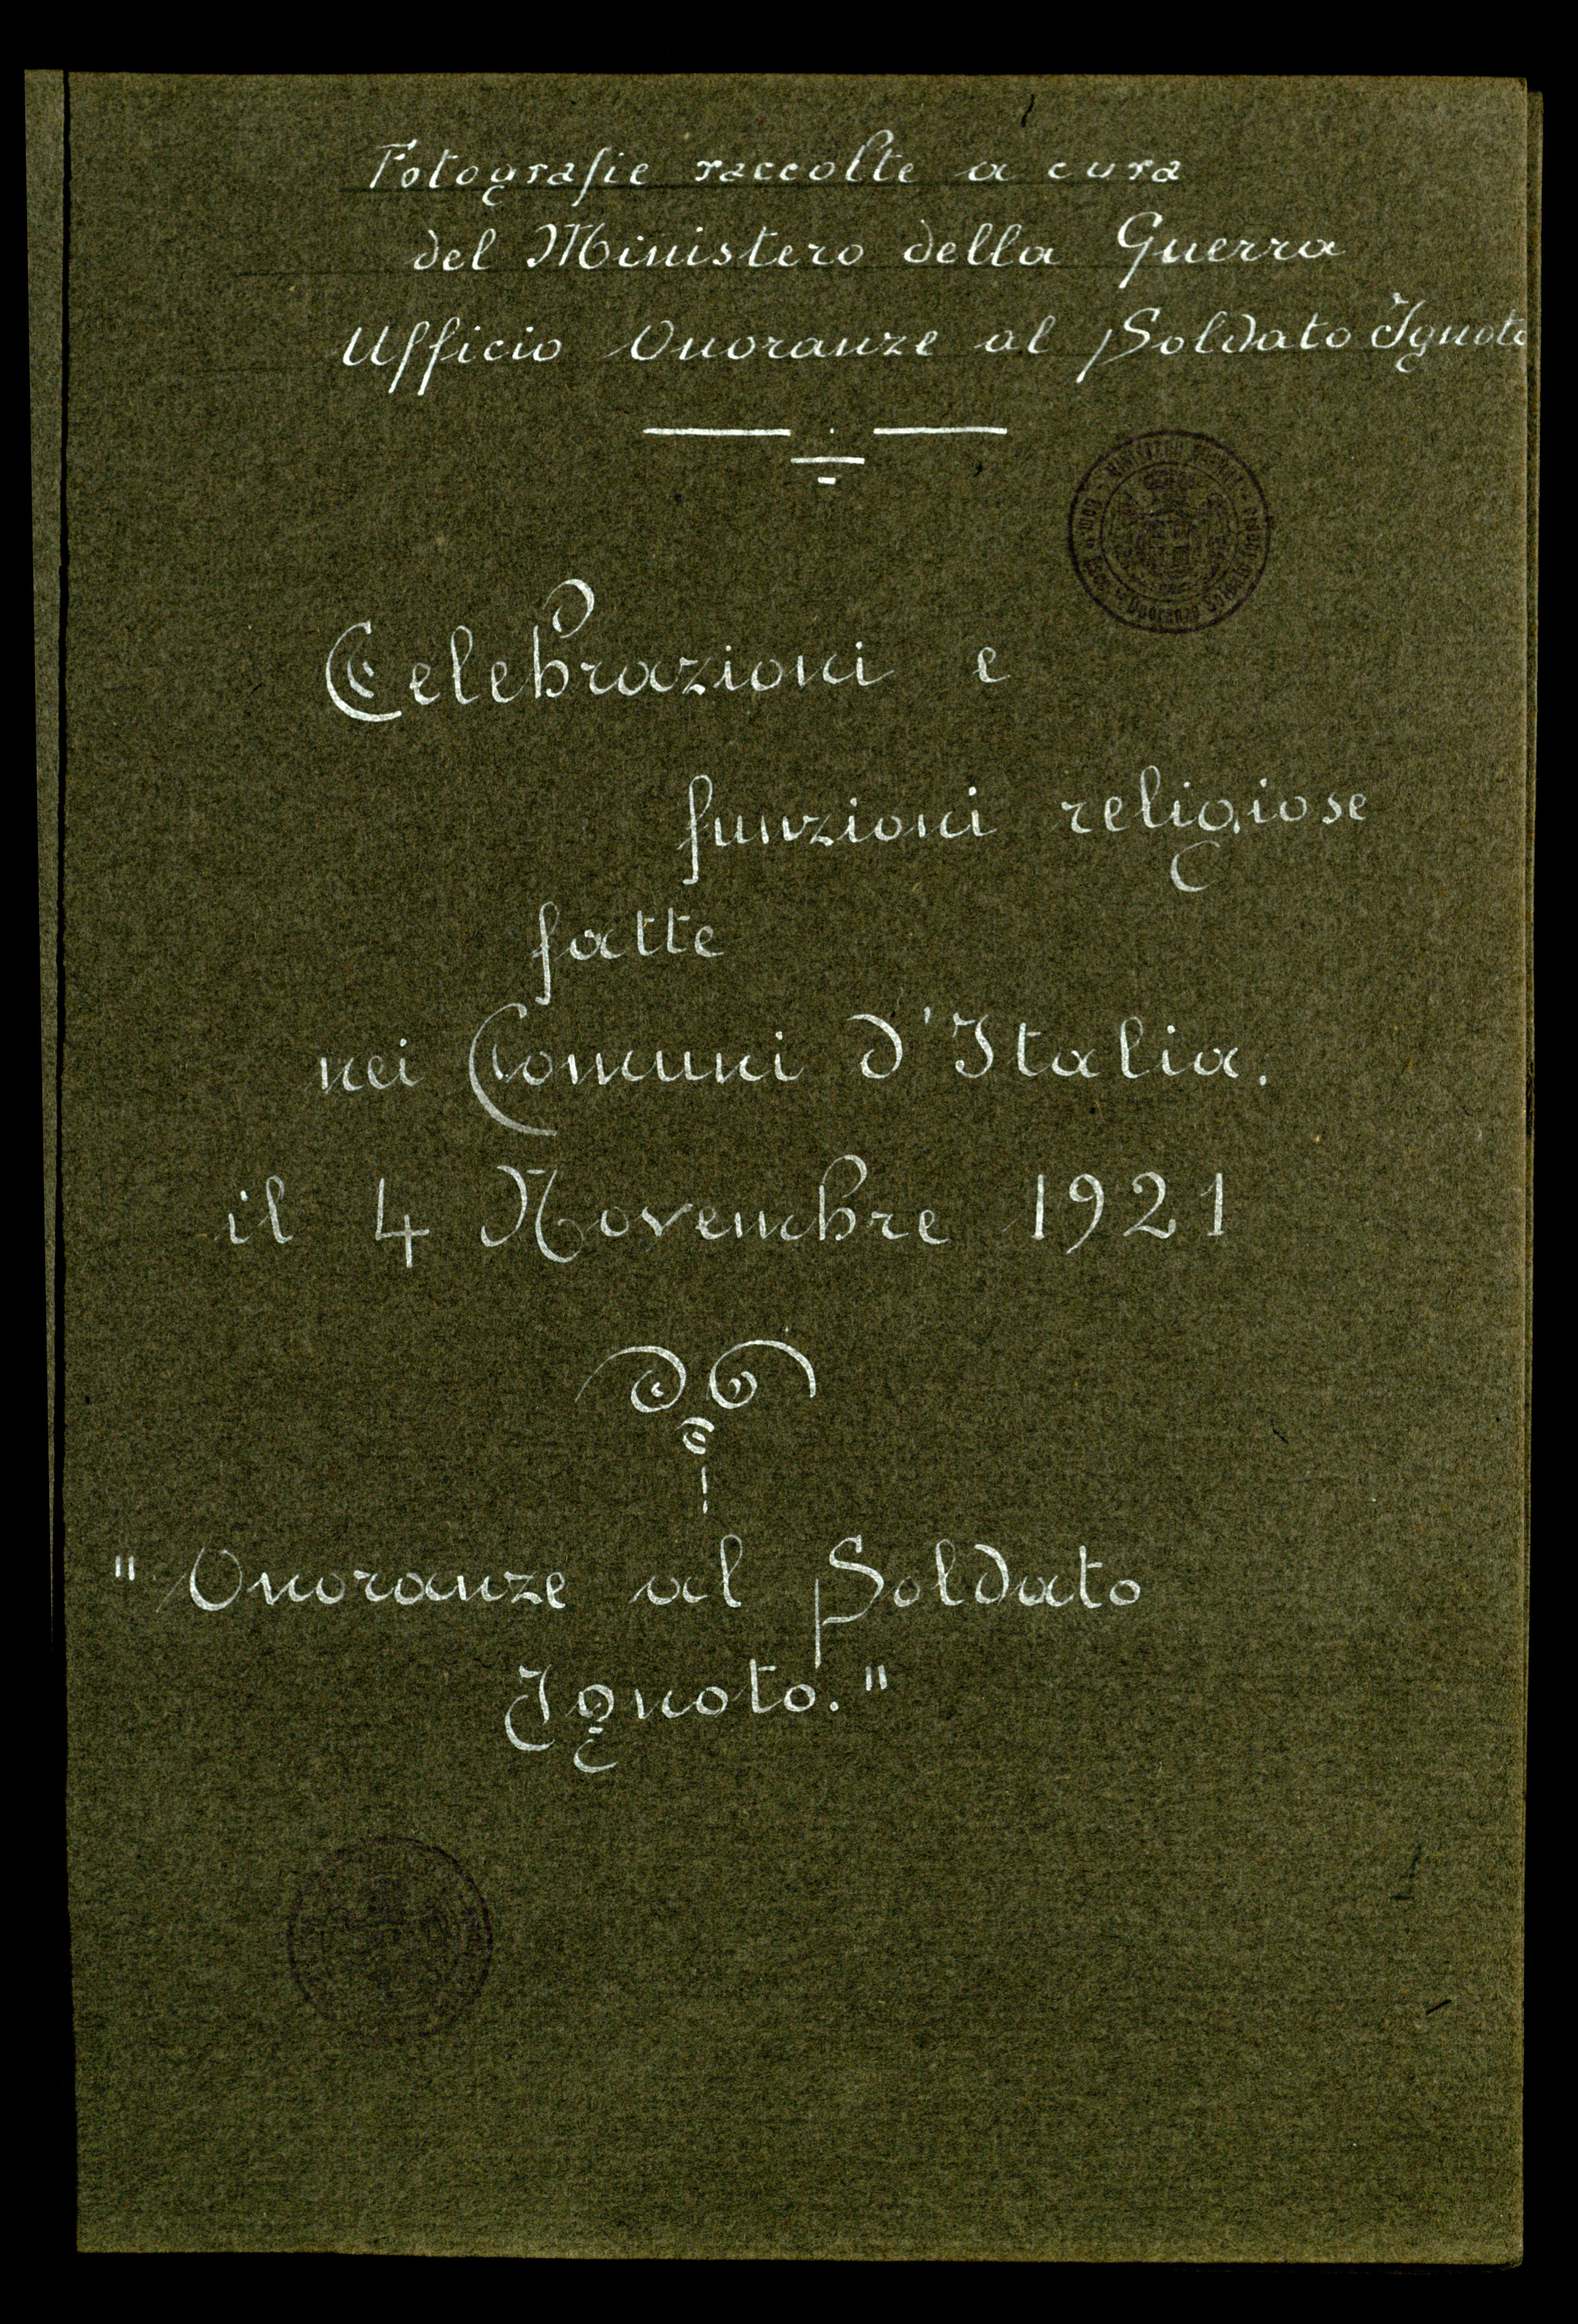 Fotografie raccolte a cura
del Ministero della Guerra
Ufficio Onoranze al Soldato Ignoto
Celebrazioni e
funzioni religiose
fatte
nei Comuni d'Italia.
il 4 Novembre 1921
"Onoranze al Soldato
Ignoto."
MINISTERO GUERRA
Onoranze Soldato Ignoto